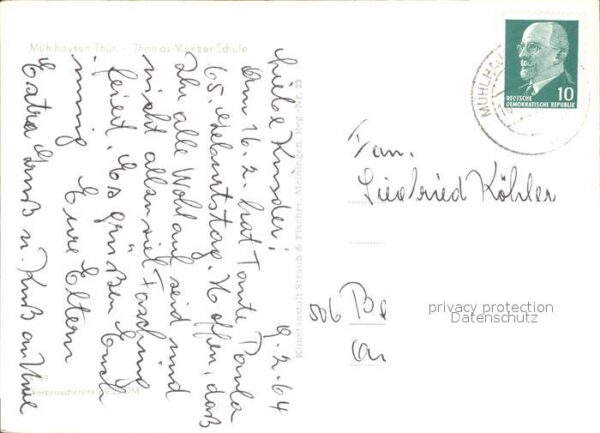 Mühlhausen Thür. - Thomas Müntzer-Schule
9.2.64
Liebe Kinder!
Am 16.2. hat Tante Paula
65. Geburtstag. Hoffen, daß
Ihr alle Wohlauf seid und
nicht allzuviel Fasching
feiert. Es grüßen Euch
innig Eure Eltern
Extra Gruß u. Kuß an Uwe
Kunstanstalt Straub & Fischer, Meiningen, Reg.-Nr. 23
MÜHLHAU
10
DEUTSCHE
DEMOKRATISCHE REPUBLIK
Fam.
Siegfried Köhler
506
privacy protection
Datenschutz